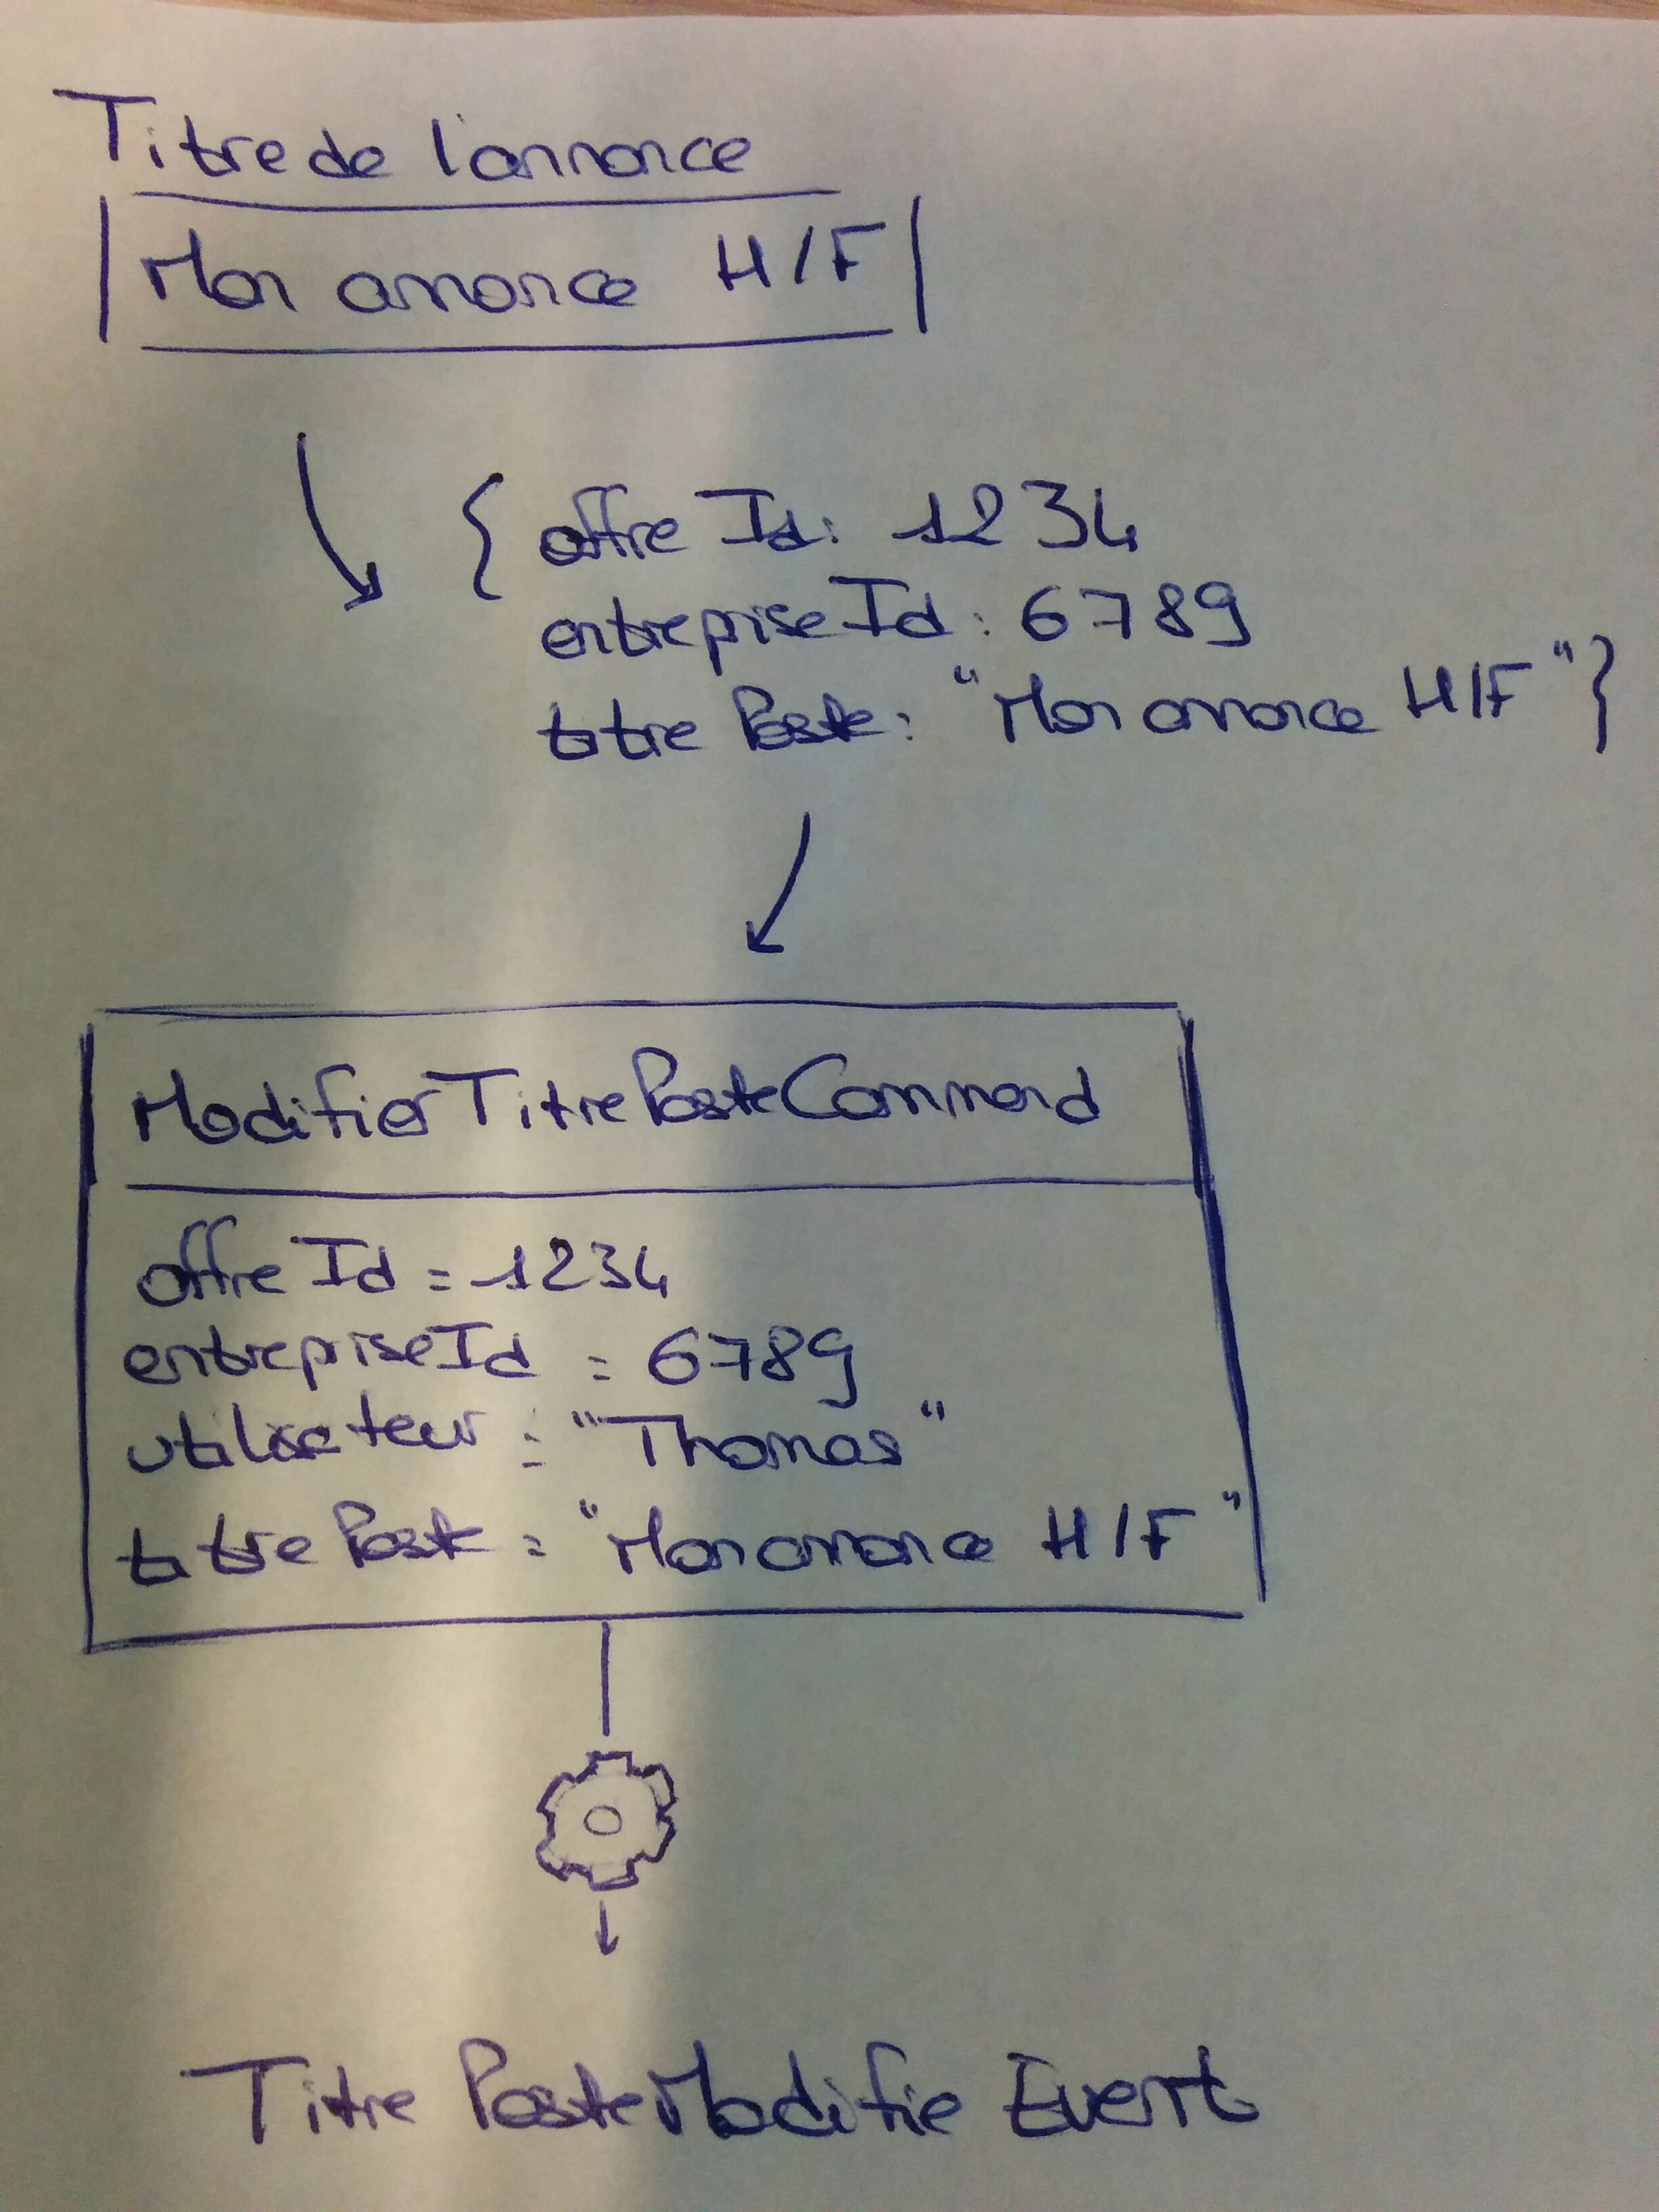 Titre de l'annonce
Mon annonce H/F
{ offreId: 1234
entrepriseId: 6789
titrePoste: "Mon annonce H/F" }
ModifierTitrePosteCommand
offreId = 1234
entrepriseId = 6789
utilisateur = "Thomas"
titrePoste = "Mon annonce H/F"
TitrePosteModifieEvent